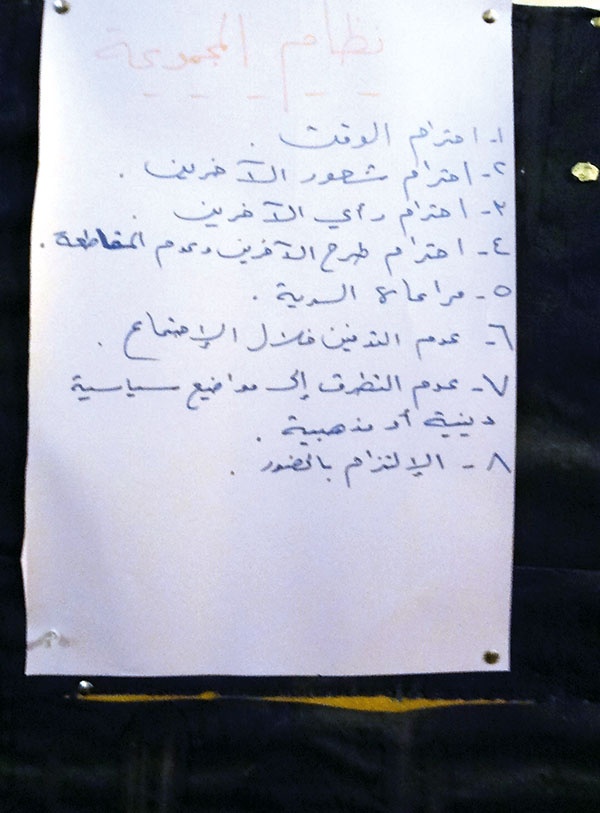 نظام المجموعة
١- احترام الوقت .
٢- احترام شعور الآخرين .
٣- احترام رأي الآخرين .
٤- احترام طرح الآخرين وعدم المقاطعة .
٥- مراعاة السرية .
٦- عدم التدخين خلال الإجتماع .
٧- عدم التطرق إلى مواضيع سياسية
دينية أو مذهبية .
٨- الإلتزام بالحضور .